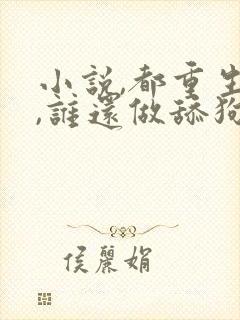 小說,都重生
,誰還做舔狗
侯麗娟